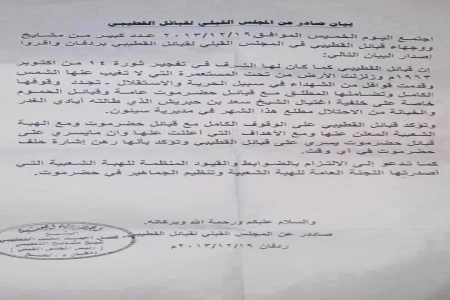 بيان صادر عن المجلس القبلي لقبائل القطيبي
اجتمع اليوم الخميس الموافق ٢٠١٣/١٢/١٩ عدد كبير من مشايخ
ووجهاء قبائل القطيبي في المجلس القبلي لقبائل القطيبي بردفان واقروا
إصدار البيان التالي:
إن قبائل القطيبي كما كان لها الشرف في تفجير ثورة ١٤ من اكتوبر
١٩٦٣م وزلزلت الأرض من تحت المستعمرة التي لا تغيب عنها الشمس
وقدمت قوافل من الشهداء في سبيل الحرية والاستقلال، تجدد وقوفها
الكامل وتضامنها المطلق مع قبائل حضرموت عامة وقبائل الحموم
خاصة على خلفية اغتيال الشيخ سعد بن حبريش الذي طالته أيادي الغدر
والخيانة من الاحتلال مطلع هذا الشهر في مديرية سيئون.
وتؤكد قبائل القطيبي على الوقوف الكامل مع قبائل حضرموت ومع الهبة
الشعبية المعلن عنها ومع الأهداف التي أعلنت عنها وان مايسري على
قبائل حضرموت يسري على قبائل القطيبي وتؤكد بأنها رهن إشارة حلف
حضرموت في أي وقت.
كما تدعو إلى الالتزام بالضوابط والقيود المنظمة للهبة الشعبية التي
أصدرتها اللجنة العامة للهبة الشعبية وتنظيم الجماهير في حضرموت.
والسلام عليكم ورحمة الله وبركاته.
صادر عن المجلس القبلي لقبائل القطيبي
ردفان ٢٠١٣/١٢/١٩م